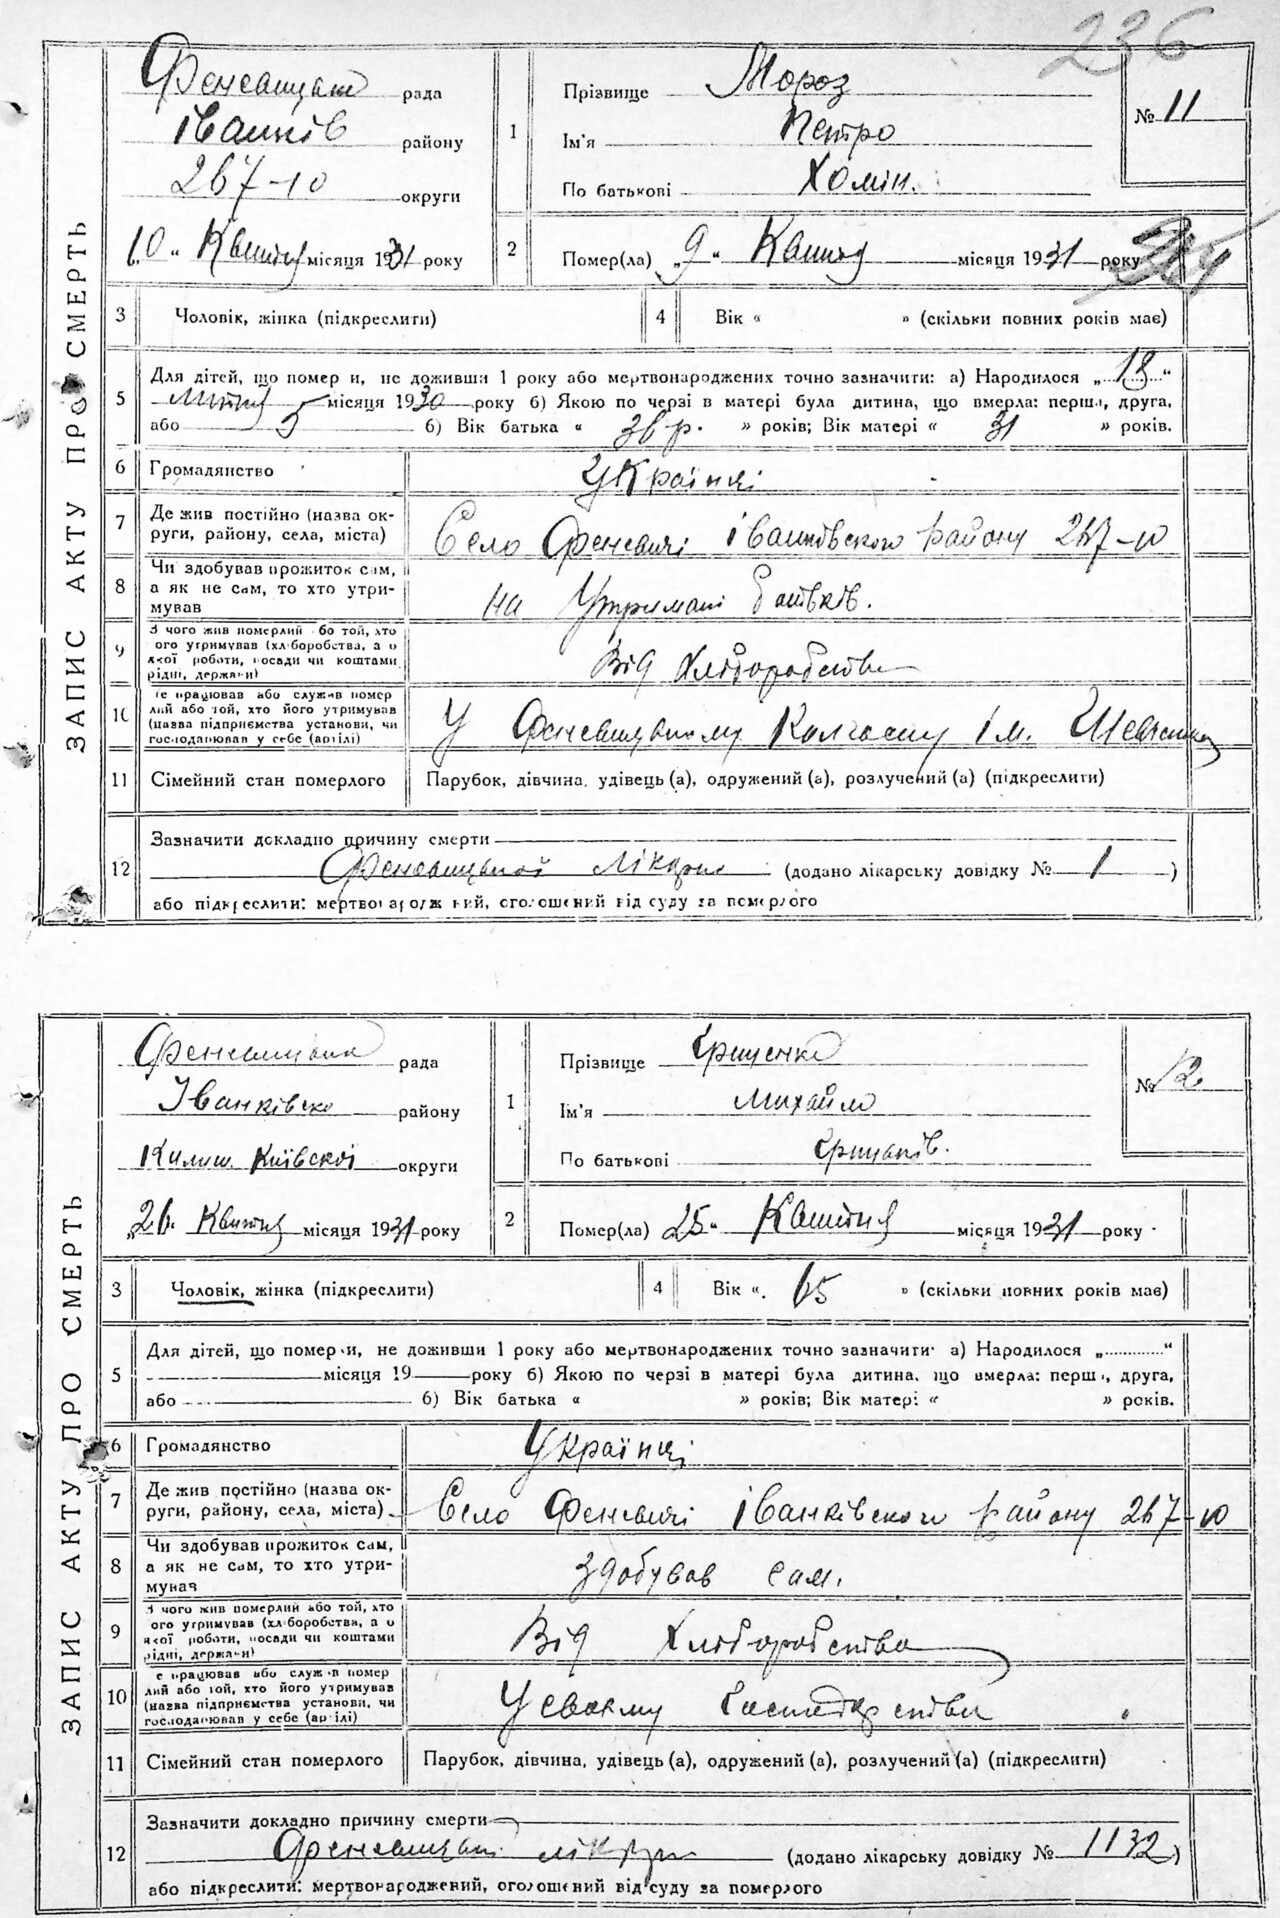 236
ЗАПИС АКТУ ПРО СМЕРТЬ
рада
Іванків району
267-10 округи
„10“ Квітня місяця 1931 року
1 Прізвище Мороз
Ім'я Петро
По батькові Хомін.
№ 11
2 Помер(ла) „9“ Квітня місяця 1931 року
3 Чоловік, жінка (підкреслити)
4 Вік « » (скільки повних років має)
5 Для дітей, що помер и, не доживши 1 року або мертвонароджених точно зазначити: а) Народилося „18“
місяця 1930 року б) Якою по черзі в матері була дитина, що вмерла: перша, друга,
або 5 б) Вік батька « 36 р. » років; Вік матері « 31 » років.
6 Громадянство Україні
7 Де жив постійно (назва ок-
руги, району, села, міста) Село Феневичі Іванковского району 267-10
8 Чи здобував прожиток сам,
а як не сам, то хто утри-
мував на Утримані батьків.
9 З чого жив померлий або той, хто
ого утримував (хл боробства, а о
якої роботи, посади чи коштами
рідні, держави) Від Хліборобства
10 е працював або служив помер
лий або той, хто його утримував
(назва підприємства установи, чи
господарював у себе (артілі) У Феневицькому Колгоспу Ім. Шевченка
11 Сімейний стан померлого Парубок, дівчина, удівець (а), одружений (а), розлучений (а) (підкреслити)
12 Зазначити докладно причину смерти
(додано лікарську довідку № 1 )
або підкреслити: мертвонароджений, оголошений від суду за померлого
ЗАПИС АКТУ ПРО СМЕРТЬ
рада
Іванківско району
Колиш. Київскої округи
„26. Квітня місяця 1931 року
1 Прізвище Грищенко
Ім'я Михайло
По батькові
№ 12
2 Помер(ла) 25“ Квітня місяця 1931 року
3 Чоловік, жінка (підкреслити)
4 Вік «. 65 » (скільки повних років має)
5 Для дітей, що помер и, не доживши 1 року або мертвонароджених точно зазначити: а) Народилося „............“
місяця 19 року б) Якою по черзі в матері була дитина, що вмерла: перша, друга,
або б) Вік батька « » років; Вік матері « » років.
6 Громадянство Україні
7 Де жив постійно (назва ок-
руги, району, села, міста) Село Феневичі Іванківского району 267-10
8 Чи здобував прожиток сам,
а як не сам, то хто утри-
мував здобував сам.
9 З чого жив померлий або той, хто
ого утримував (хл боробства, а о
якої роботи, посади чи коштами
рідні, держави) Від Хліборобства
10 е працював або служ в помер
лий або той, хто його утримував
(назва підприємства установи, чи
господарював у себе (артілі) У своєму Господарстви
11 Сімейний стан померлого Парубок, дівчина, удівець (а), одружений (а), розлучений (а) (підкреслити)
12 Зазначити докладно причину смерти
(додано лікарську довідку № 1132 )
або підкреслити: мертвонароджений, оголошений від суду за померлого